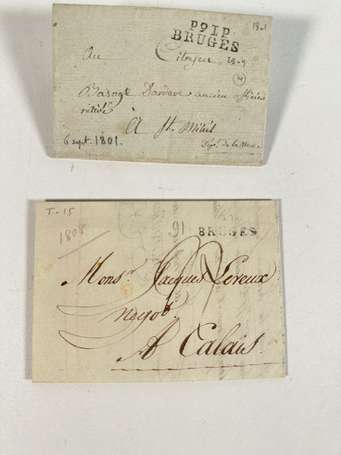 P91P
BRUGES
Au Citoyen
ancien officier
retiré
A St. Mihiel
6 sept. 1801.
Dépt. de la Meuse
T-15
1808
91
BRUGES
Monsr. Jacques Leveux
negot.
A Calais